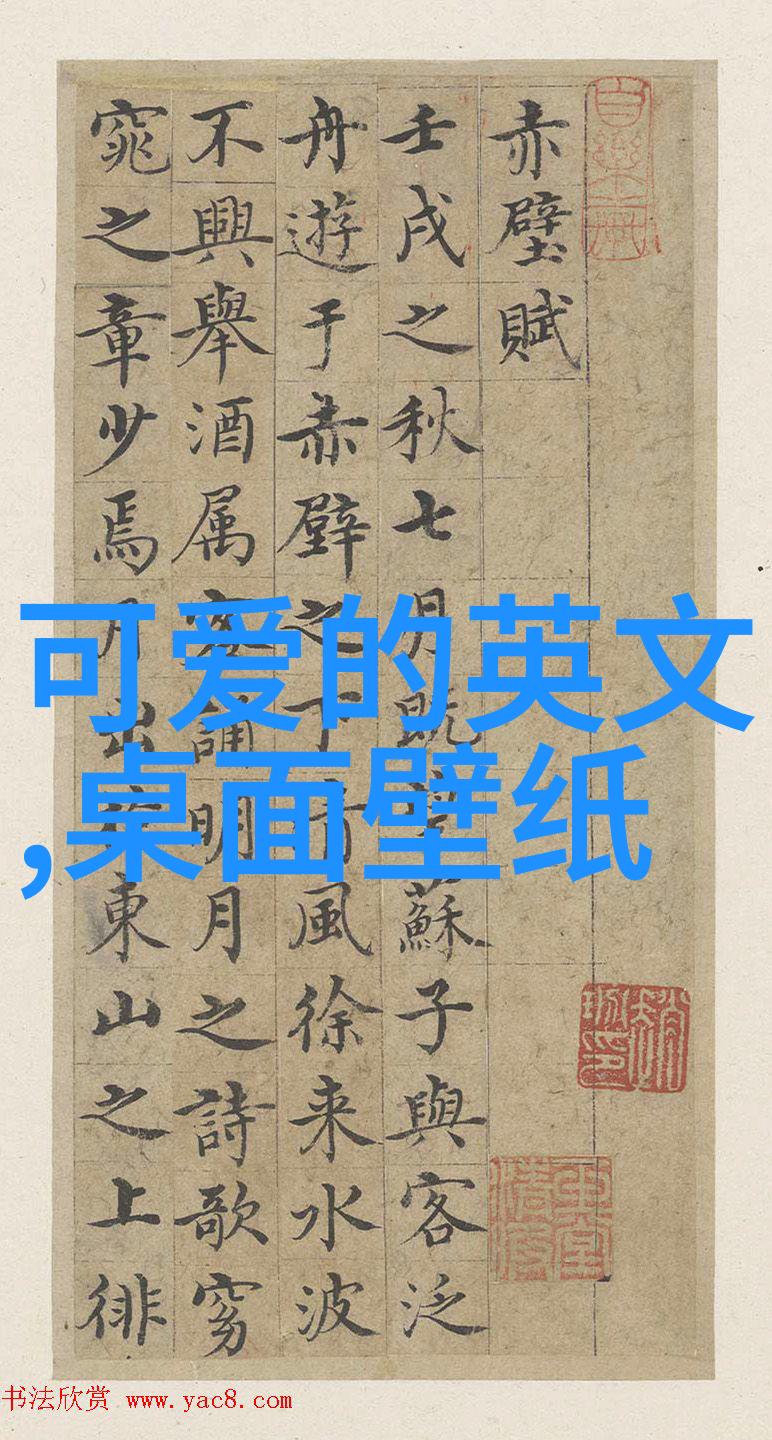 赤壁賦
壬戌之秋七月既蘇子與客泛
舟遊于赤壁之下清風徐来水波
不興舉酒属客誦明月之詩歌窈
窕之章少焉月出東山之上徘
可爱的英文
,桌面壁纸
书法欣赏 www.yac8.com